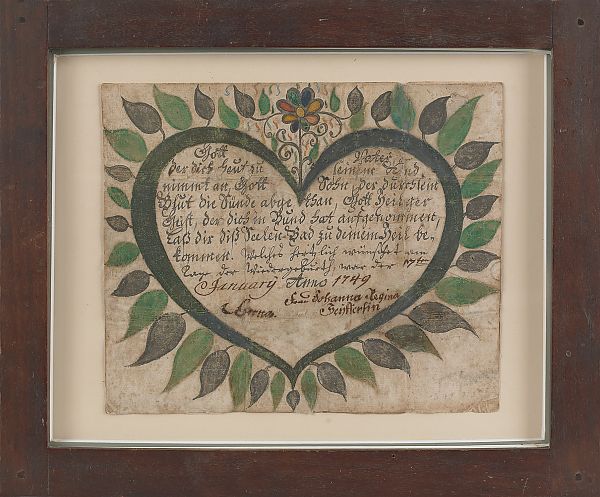 Gott Vater
der dich heut zu seinem Kind
nimmt an, Gott Sohn, der durch sein
Blut die Sünde abge than, Gott Heilger
Geist, der dich in Bund hat aufgenommen,
Laß dir diß Seelen-Bad zu deinem Heil be-
kommen. Welches hertzlich wünschet am
Tage der Wiedergeburth, war der 17ten
January Anno 1749
Johanna Regina